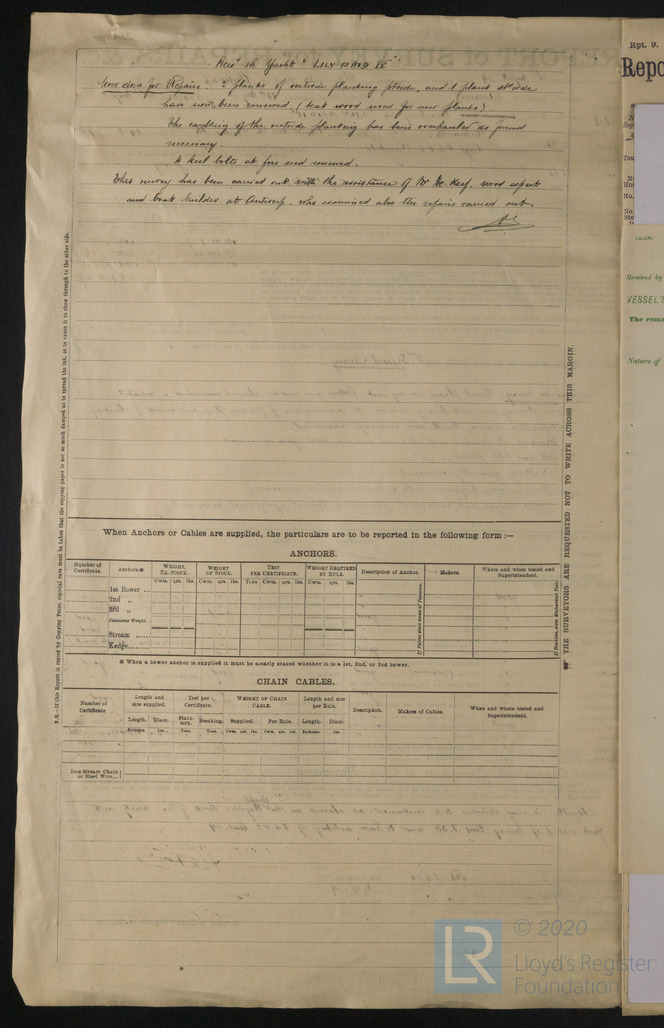 Yacht "LILY MAID IV"
Now done for Repairs :- 2 planks of outside planking portside, and 1 plank st side
have now been renewed (teak wood used for new planks)
The caulking of the outside planking has been overhauled as found
necessary.
4 keel bolts at fore end renewed.
This survey has been carried out with the assistance of Mr De Keyf, wood expert
and boat builder at Antwerp, who examined also the repairs carried out.
N.B.—If this Report is copied by Copying Press, especial care must be taken that the copying paper is not so much damped as to spread the ink, or to cause it to show through to the other side.
THE SURVEYORS ARE REQUESTED NOT TO WRITE ACROSS THIS MARGIN.
When Anchors or Cables are supplied, the particulars are to be reported in the following form :—
ANCHORS.
Number of Certificate.
Anchors※
WEIGHT, EX. STOCK.
WEIGHT OF STOCK.
TEST PER CERTIFICATE.
WEIGHT REQUIRED BY RULE.
Description of Anchor.
Makers.
Where and when tested and Superintendent.
Cwts. qrs. lbs. Cwts. qrs. lbs. Tons Cwts. qrs. lbs. Cwts. qrs. lbs.
1st Bower ...
2nd „
3rd „
Collective Weight.
Stream ......
Kedge.........
※ When a bower anchor is supplied it must be clearly stated whether it is a 1st, 2nd, or 3rd bower.
CHAIN CABLES.
Number of Certificate
Length and size supplied.
Test per Certificate.
WEIGHT OF CHAIN CABLE.
Length and size per Rule.
Description.
Makers of Cables.
When and where tested and Superintendent.
Length. Diam. Statutory. Breaking. Supplied. Per Rule. Length. Diam.
Fathoms. Ins. Tons. Tons. Cwts. qrs. lbs. Cwts. qrs. lbs. Fathoms. Ins.
Iron Stream Chain or Steel Wire...
Rpt. 9.
Repo
Received by
VESSEL'S
The rema
Nature of
LR
© 2020
Lloyd's Register
Foundation